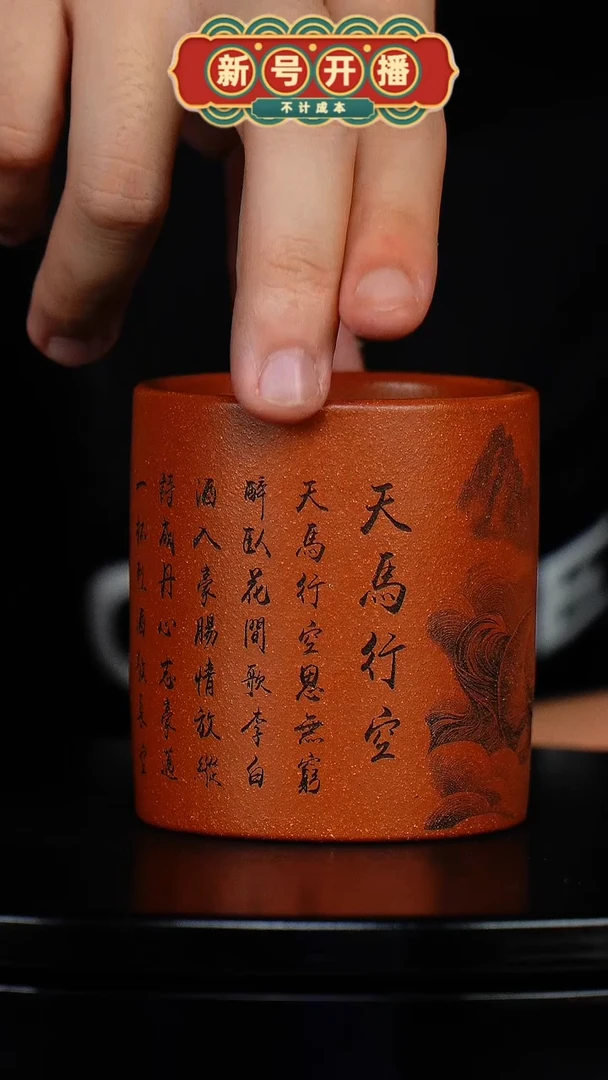 新号开播
不计成本
天馬行空
天馬行空思無窮
醉臥花間歌李白
酒入豪腸情放縱
詩成丹心志豪邁
一杯濁酒敬長空